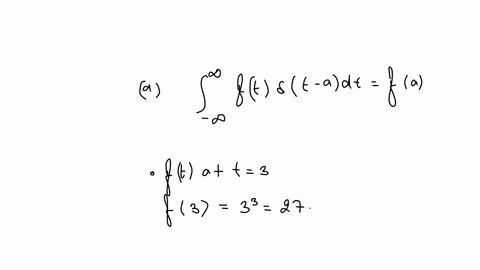 (a) ∫_{-∞}^{∞} f(t) δ(t-a)dt = f(a)
• f(t) at t = 3
f(3) = 3³ = 27.